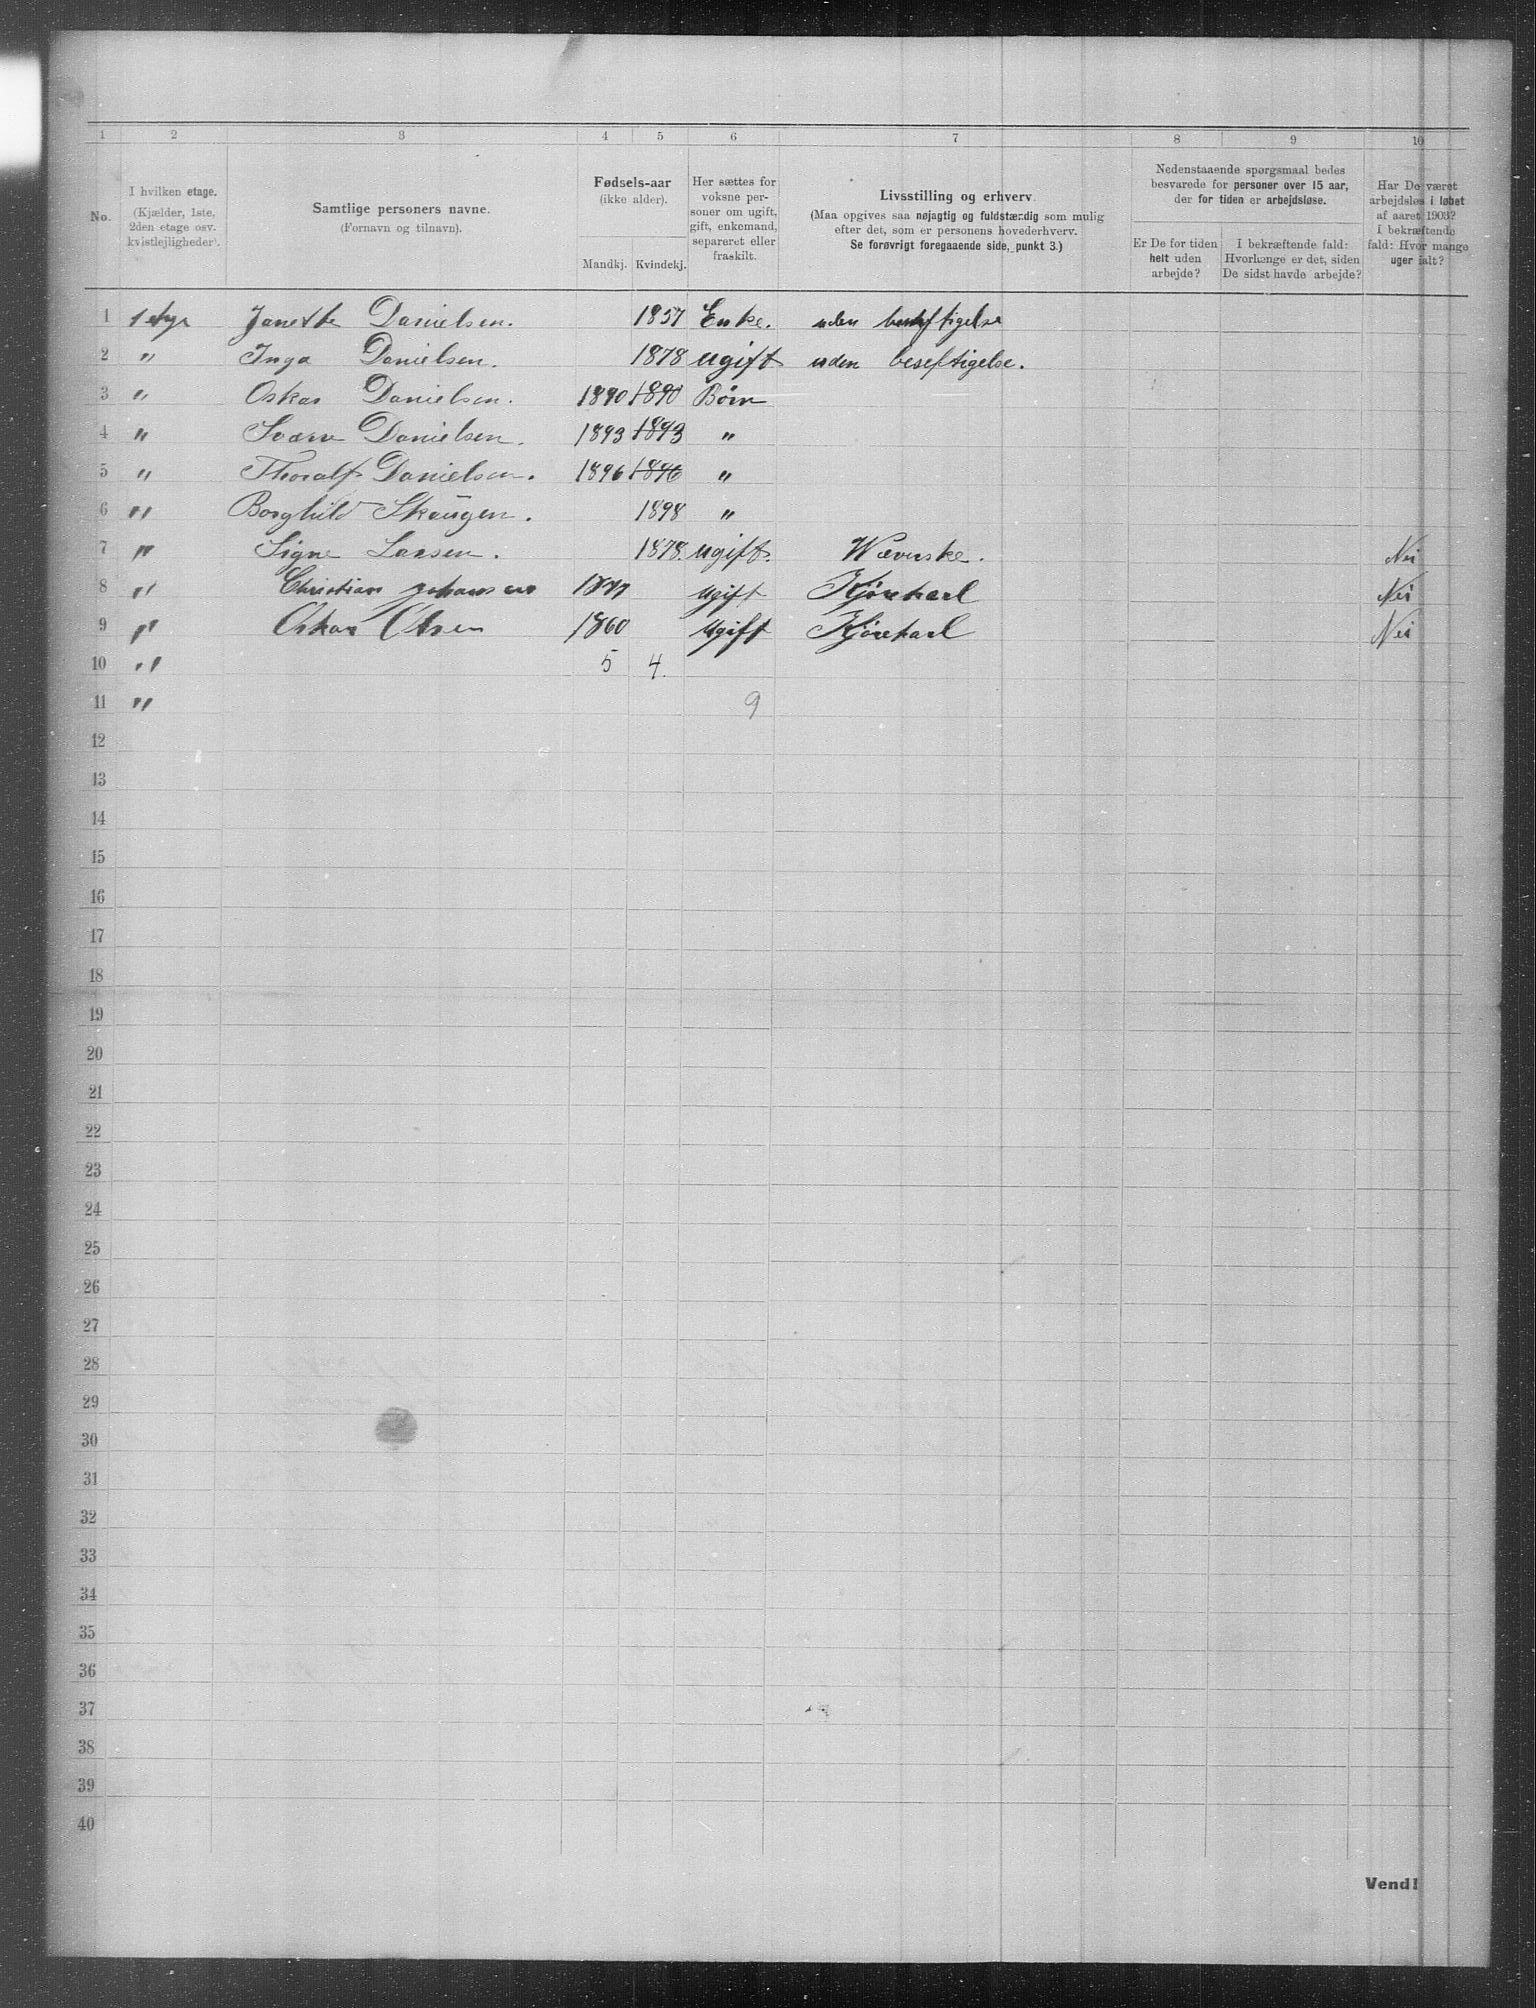 1 2 3 4 5 6 7 8 9 10
No.
I hvilken etage.
(Kjælder, 1ste,
2den etage osv.
kvistlejligheder).
Samtlige personers navne.
(Fornavn og tilnavn).
Fødsels-aar
(ikke alder).
Mandkj. Kvindekj.
Her sættes for
voksne per-
soner om ugift,
gift, enkemand,
separeret eller
fraskilt.
Livsstilling og erhverv
(Maa opgives saa nøjagtig og fuldstændig som mulig
efter det, som er personens hovederhverv.
Se forøvrigt foregaaende side, punkt 3.)
Nedenstaaende spørgsmaal bedes
besvarede for personer over 15 aar,
der for tiden er arbejdsløse.
Er De for tiden
helt uden
arbejde?
I bekræftende fald:
Hvorlænge er det, siden
De sidst havde arbejde?
Har De været
arbejdsløs i løbet
af aaret 1903?
I bekræftende
fald: Hvor mange
uger ialt?
1 Janette Danielsen. 1857 Enke. uden
2 " Inga Danielsen. 1878 ugift uden beseftigelse.
3 " Oskar Danielsen. 1890 1890 Børn
4 " Sverre Danielsen. 1893 1893 "
5 " Thoralf Danielsen. 1896 1896 "
6 " Borghild Skaugen. 1898 "
7 " Signe Larsen. 1878. ugift. Næi
8 " Christian Johansen ugift Kjørekarl Nei
9 " Oskar Olsen 1860 ugift Kjørekarl Nei
10 " 5 4.
11 " 9
12
13
14
15
16
17
18
19
20
21
22
23
24
25
26
27
28
29
30
31
32
33
34
35
36
37
38
39
40
Vend!